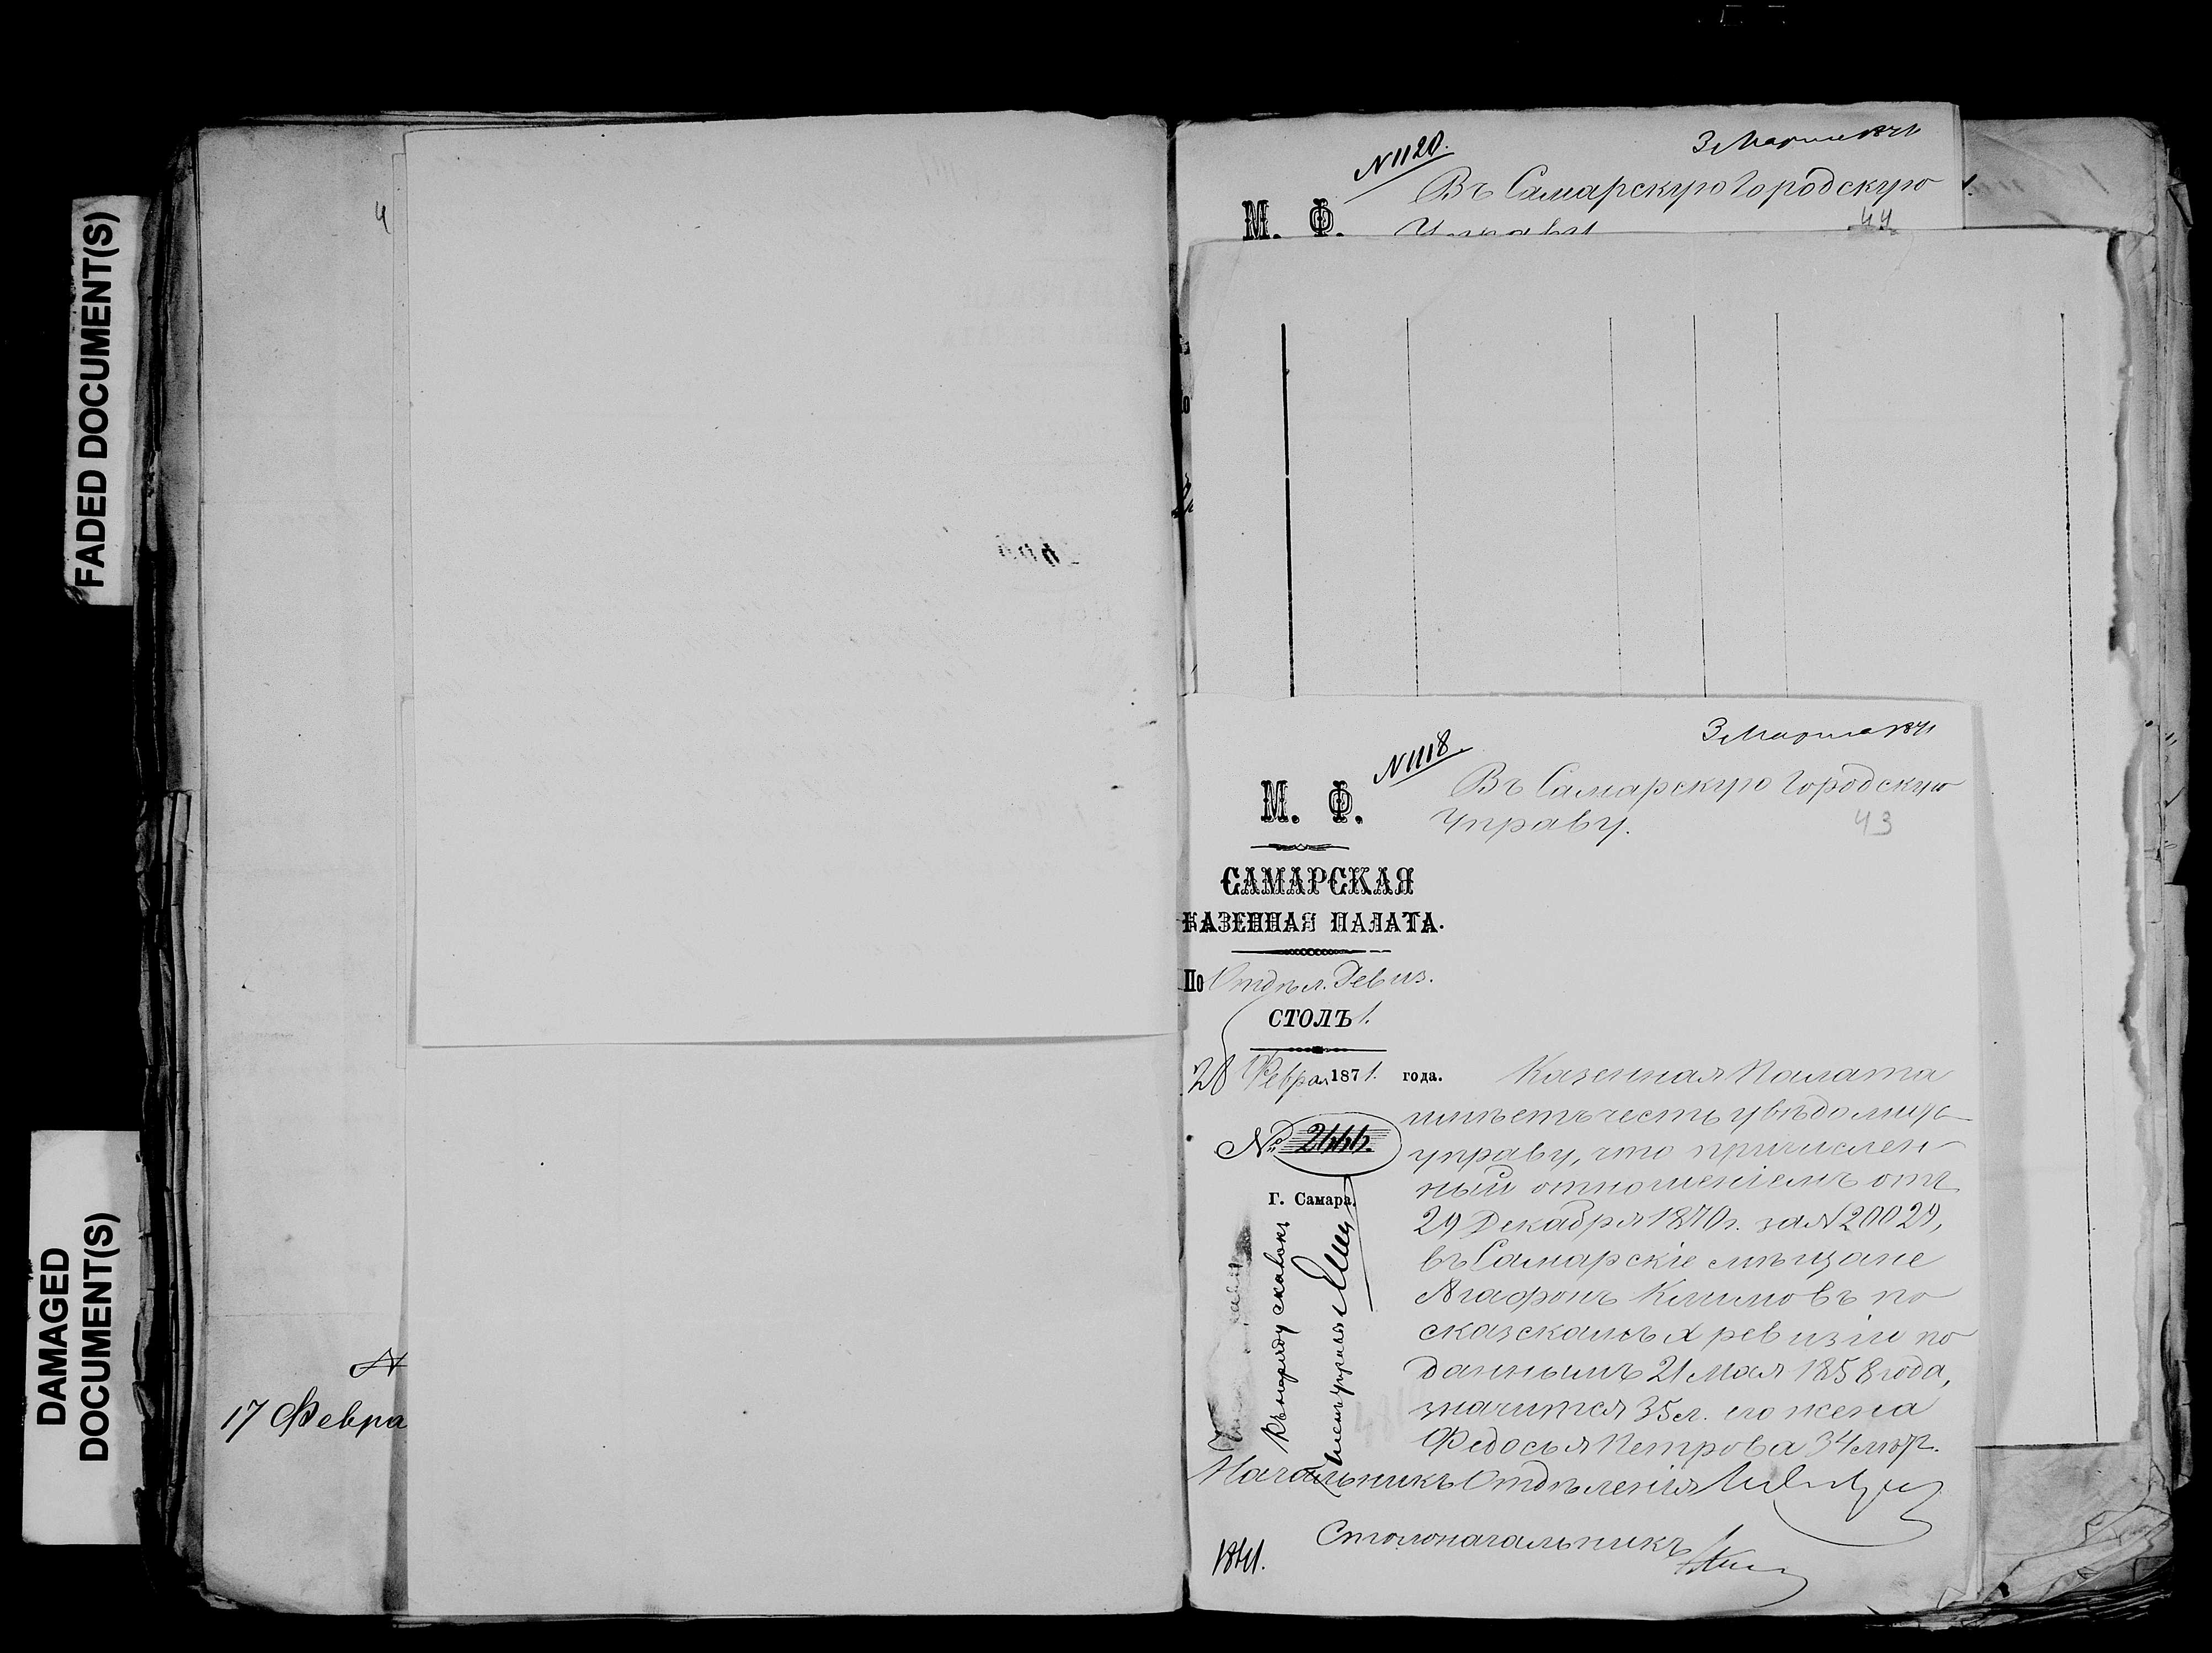 FADED DOCUMENT(S)
DAMAGED
DOCUMENT(S)
17 Февра
N 1120.
3 Марта 1871
Въ Самарскую Городскую
Управу
М. Ф.
44
N 1118.
3 Марта 1871
Въ Самарскую Городскую
Управу.
43
М. Ф.
САМАРСКАЯ
КАЗЕННАЯ ПАЛАТА.
По Отдѣл. Ревиз.
СТОЛЪ 1.
28 Феврал 1871. года.
№
Г. Самара.
Казенная Палата
имѣетъ честь увѣдомить
управу, что причислен-
ный отношеніемъ отъ
29 Декабря 1870 г. за N 20029,
въ Самарскіе мѣщане
Агафонъ Климовъ по
сказкамъ X ревизіи по
даннымъ 21 Мая 1858 года,
значится 35 л. его жена
Федосья Петрова 34 лѣтъ.
Начальникъ Отдѣленія
Столоначальникъ
Къ наряду сказокъ
Членъ управы